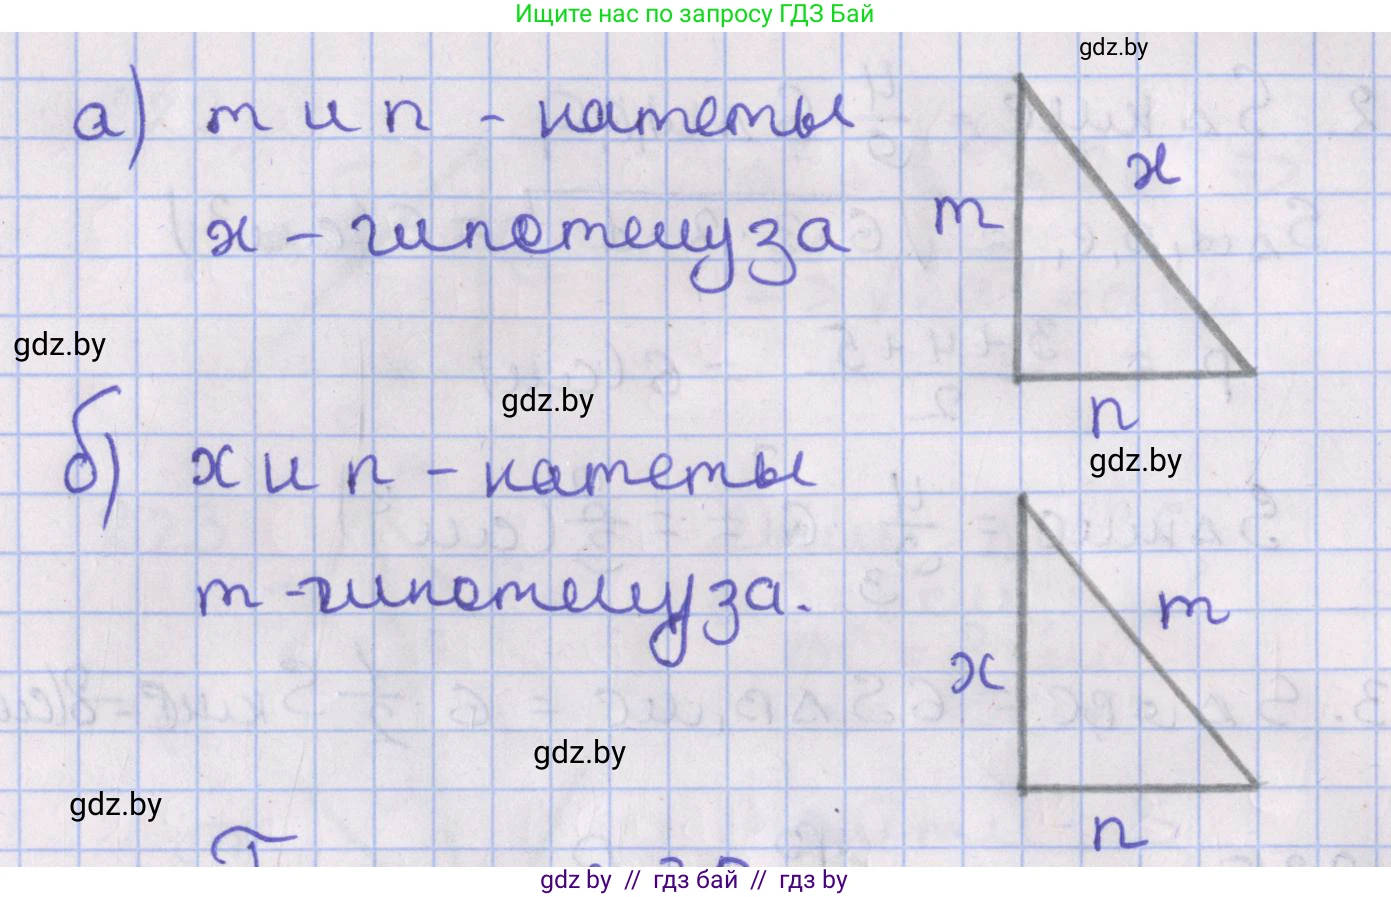 Ищите нас по запросу ГДЗ Бай
gdz.by
а) m и n - катеты
x
x - гипотенуза
m
gdz.by
gdz.by
n
б) x и n - катеты
gdz.by
m - гипотенуза.
m
x
gdz.by
gdz.by
n
gdz by // гдз бай // гдз by